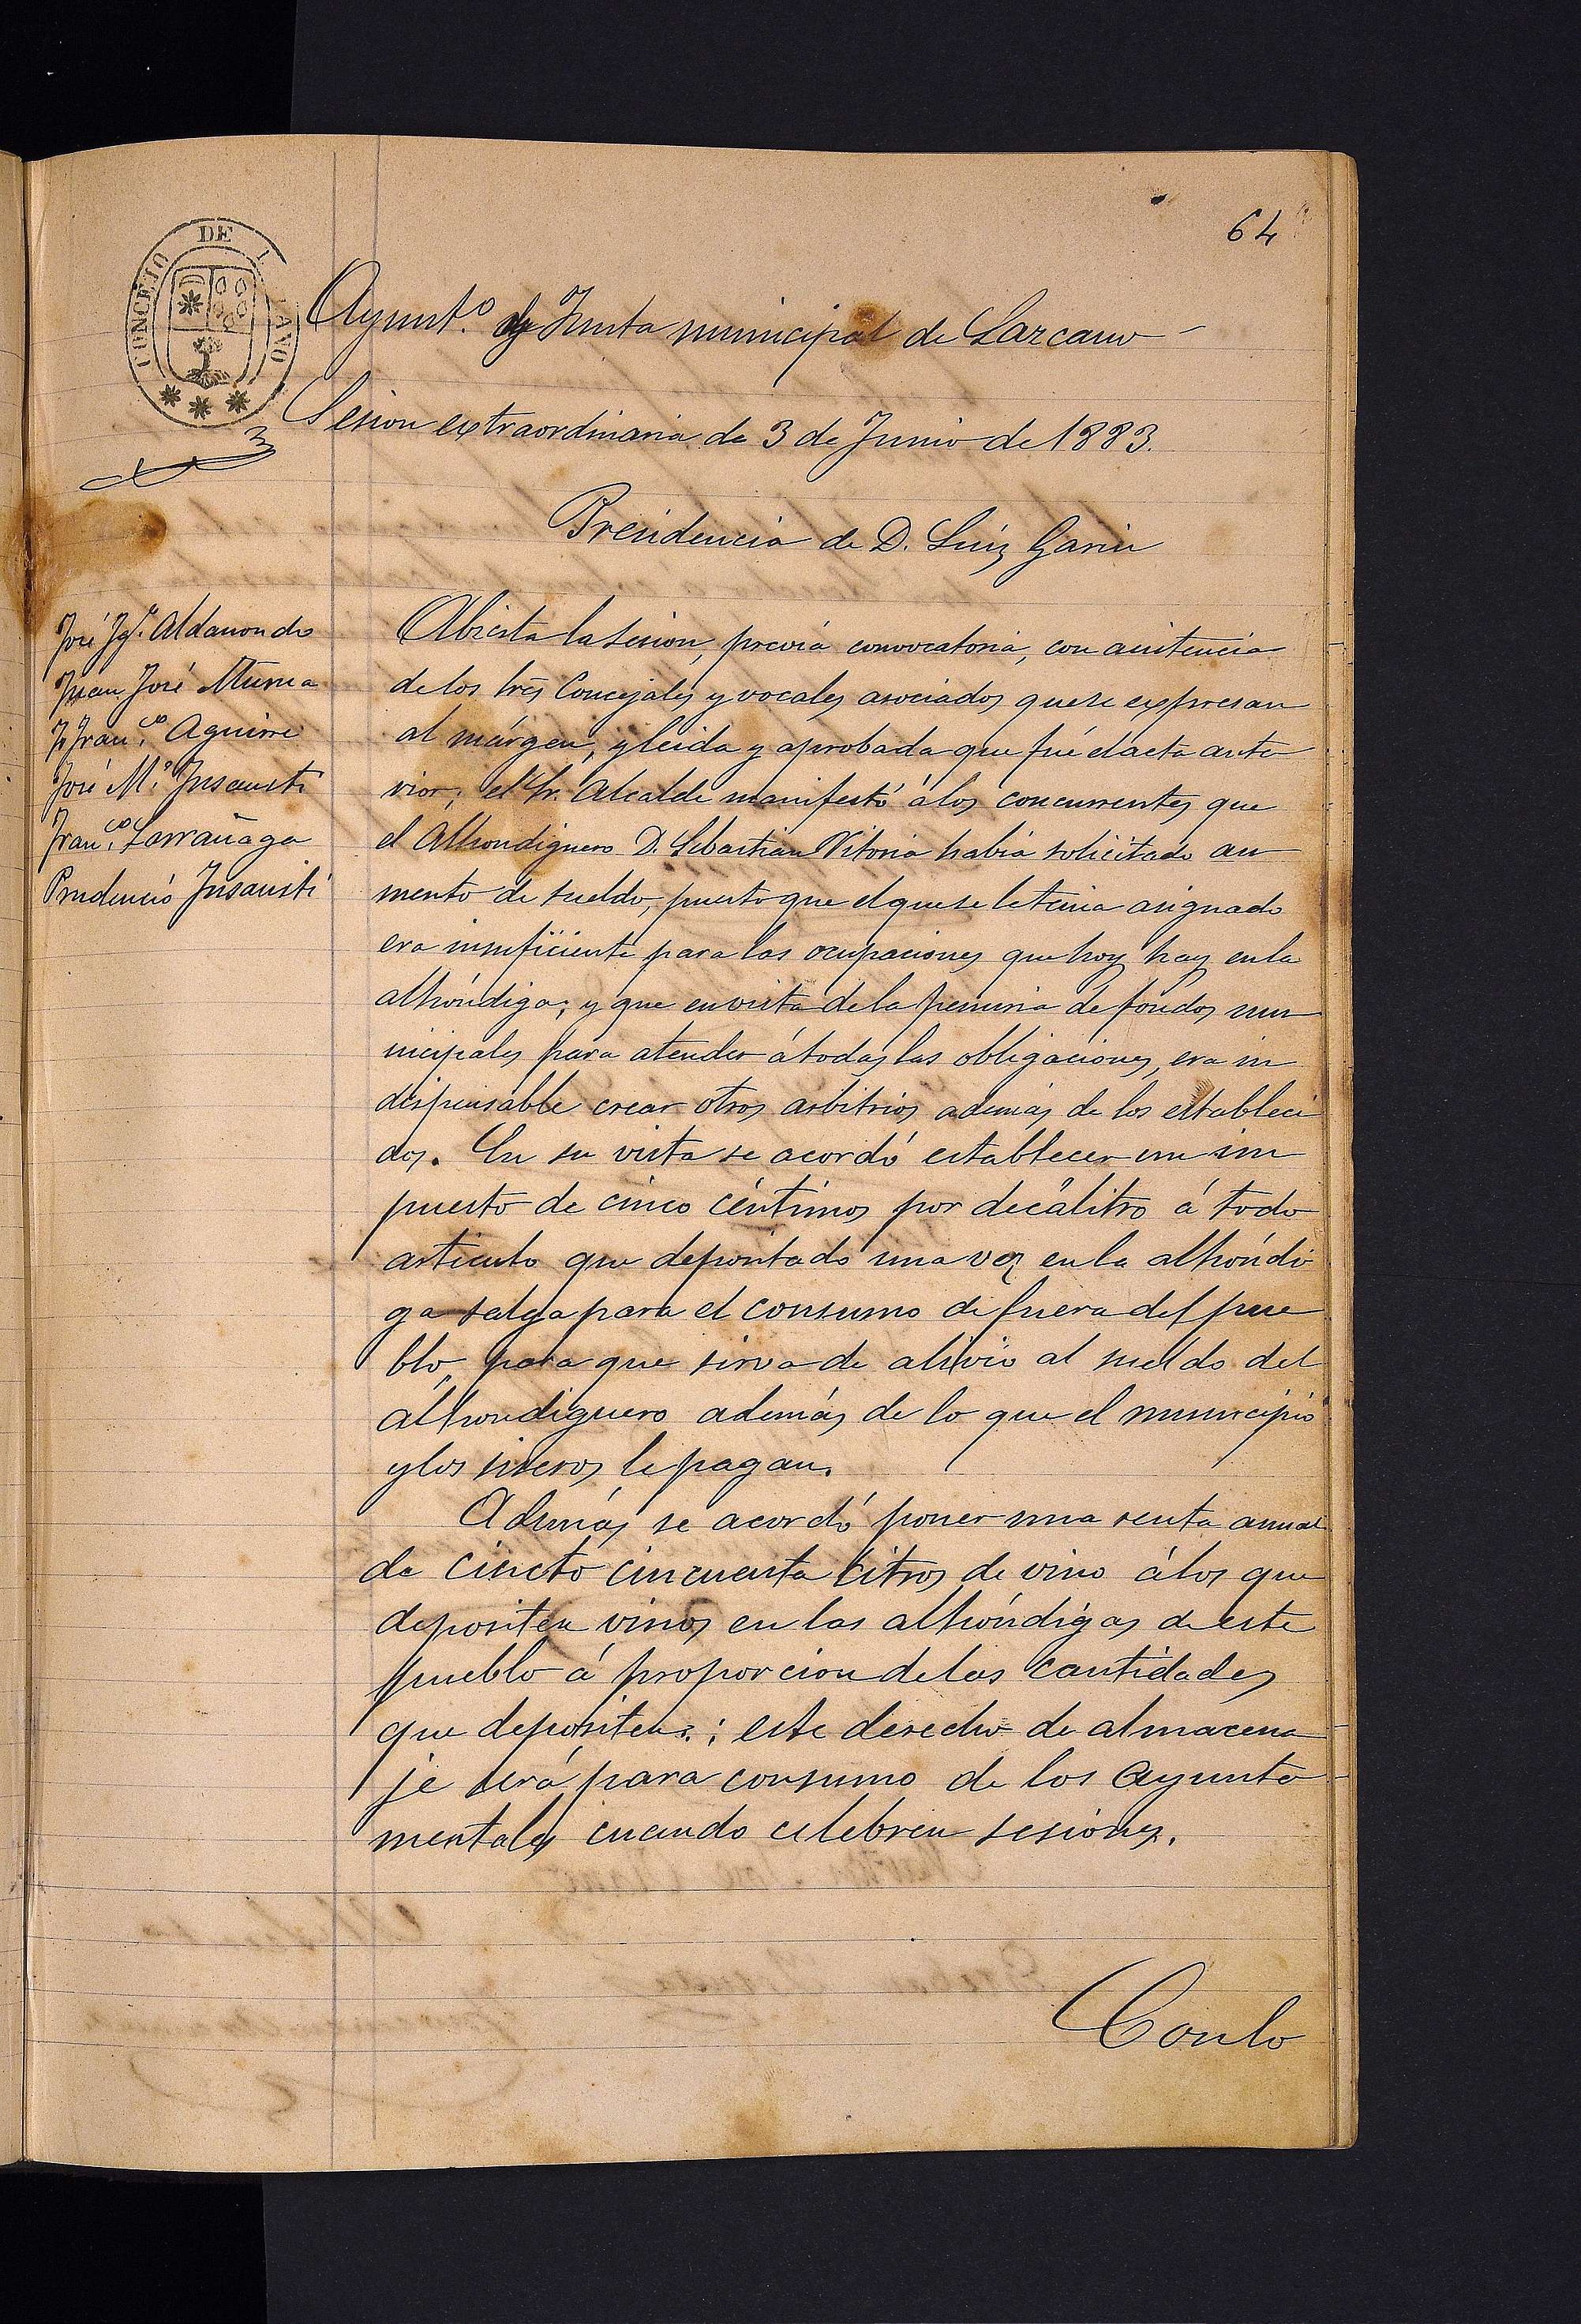 64
CONCEJO DE L ANO
Ayunt.º y Junta municipal de Lazcano
Sesion extraordinaria de 3 de Junio de 1883.
Presidencia de D. Luiz Garin
José Ig.º Aldasoro
Juan José Munua
J. Fran.co Aguirre
José M.ª Insausti
Fran.co Larrañaga
Prudencio Insausti
Abierta la sesion, previa convocatoria, con asistencia
de los Sres Concejales y vocales asociados que se expresan
al márgen, y leida y aprobada que fué el acta ante
rior; el Sr. Alcalde manifestó á los concurrentes que
el Alhondiguero D. Sebastian Vitoria habia solicitado au
mento de sueldo, puesto que el que se le tenia asignado
era insuficiente para las ocupaciones que hoy hay en la
alhóndiga; y que en vista de la penuria de fondos mu
nicipales para atender á todas las obligaciones, era in
dispensable crear otros arbitrios además de los estableci
dos. En su vista se acordó establecer un im
puesto de cinco céntimos por decálitro á todo
articulo que depositado una vez en la alhóndi
ga salga para el consumo de fuera del pue
blo, para que sirva de alivio al sueldo del
alhondiguero además de lo que el municipio
y los siseros le pagan.
Además se acordó poner una renta anual
de cincto cincuenta litros de vino á los que
depositen vinos en las alhóndigas de este
pueblo á proporcion de las cantidades
que depositen.; este derecho de almacena
je será para consumo de los ayunta
mentales cuando celebren sesiones.
Con lo